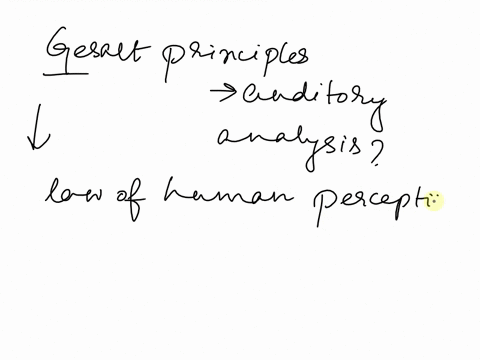 Gesalt principles
→ auditory
↓
analysis?
law of human percepti